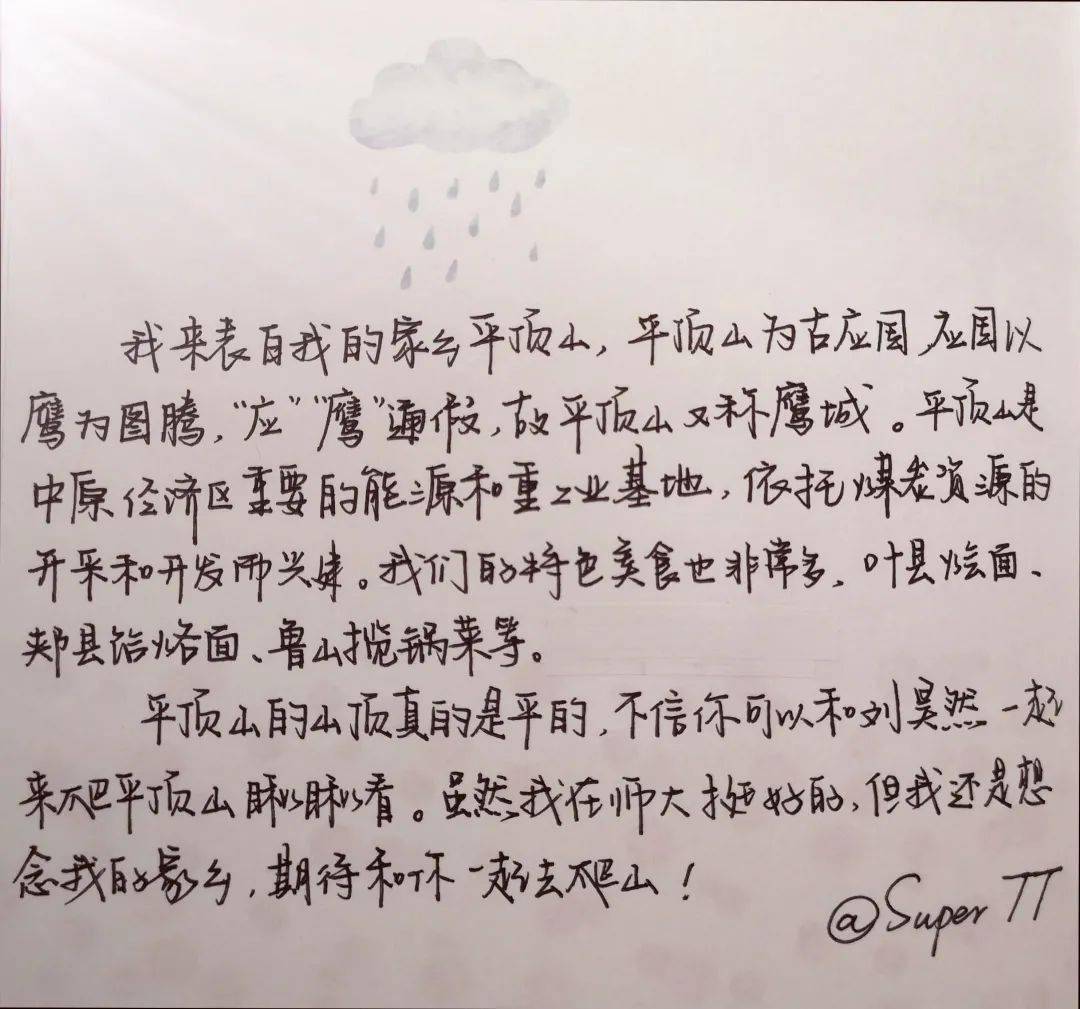 我来表白我的家乡平顶山，平顶山为古应国，应国以
鹰为图腾，“应”“鹰”通假，故平顶山又称鹰城。平顶山是
中原经济区重要的能源和重工业基地，依托煤炭资源的
开采和开发而兴建。我们的特色美食也非常多，叶县烩面、
郏县饸烙面、鲁山揽锅菜等。
平顶山的山顶真的是平的，不信你可以和刘昊然一起
来爬平顶山瞅瞅看。虽然我在师大挺好的，但我还是想
念我的家乡，期待和你一起去爬山！
@Super TT